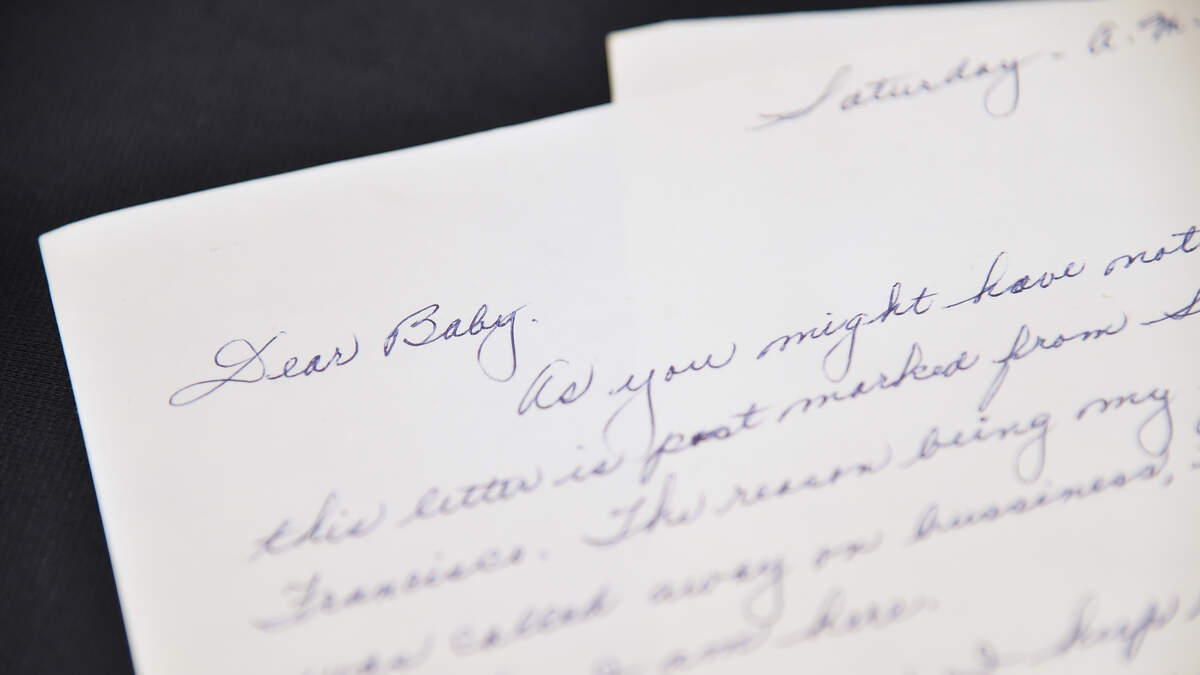 Saturday - A.M.
Dear Baby.
As you might have not
this letter is post marked from S
Francisco. The reason being my
was called away on bussiness,
I am here.
I keep